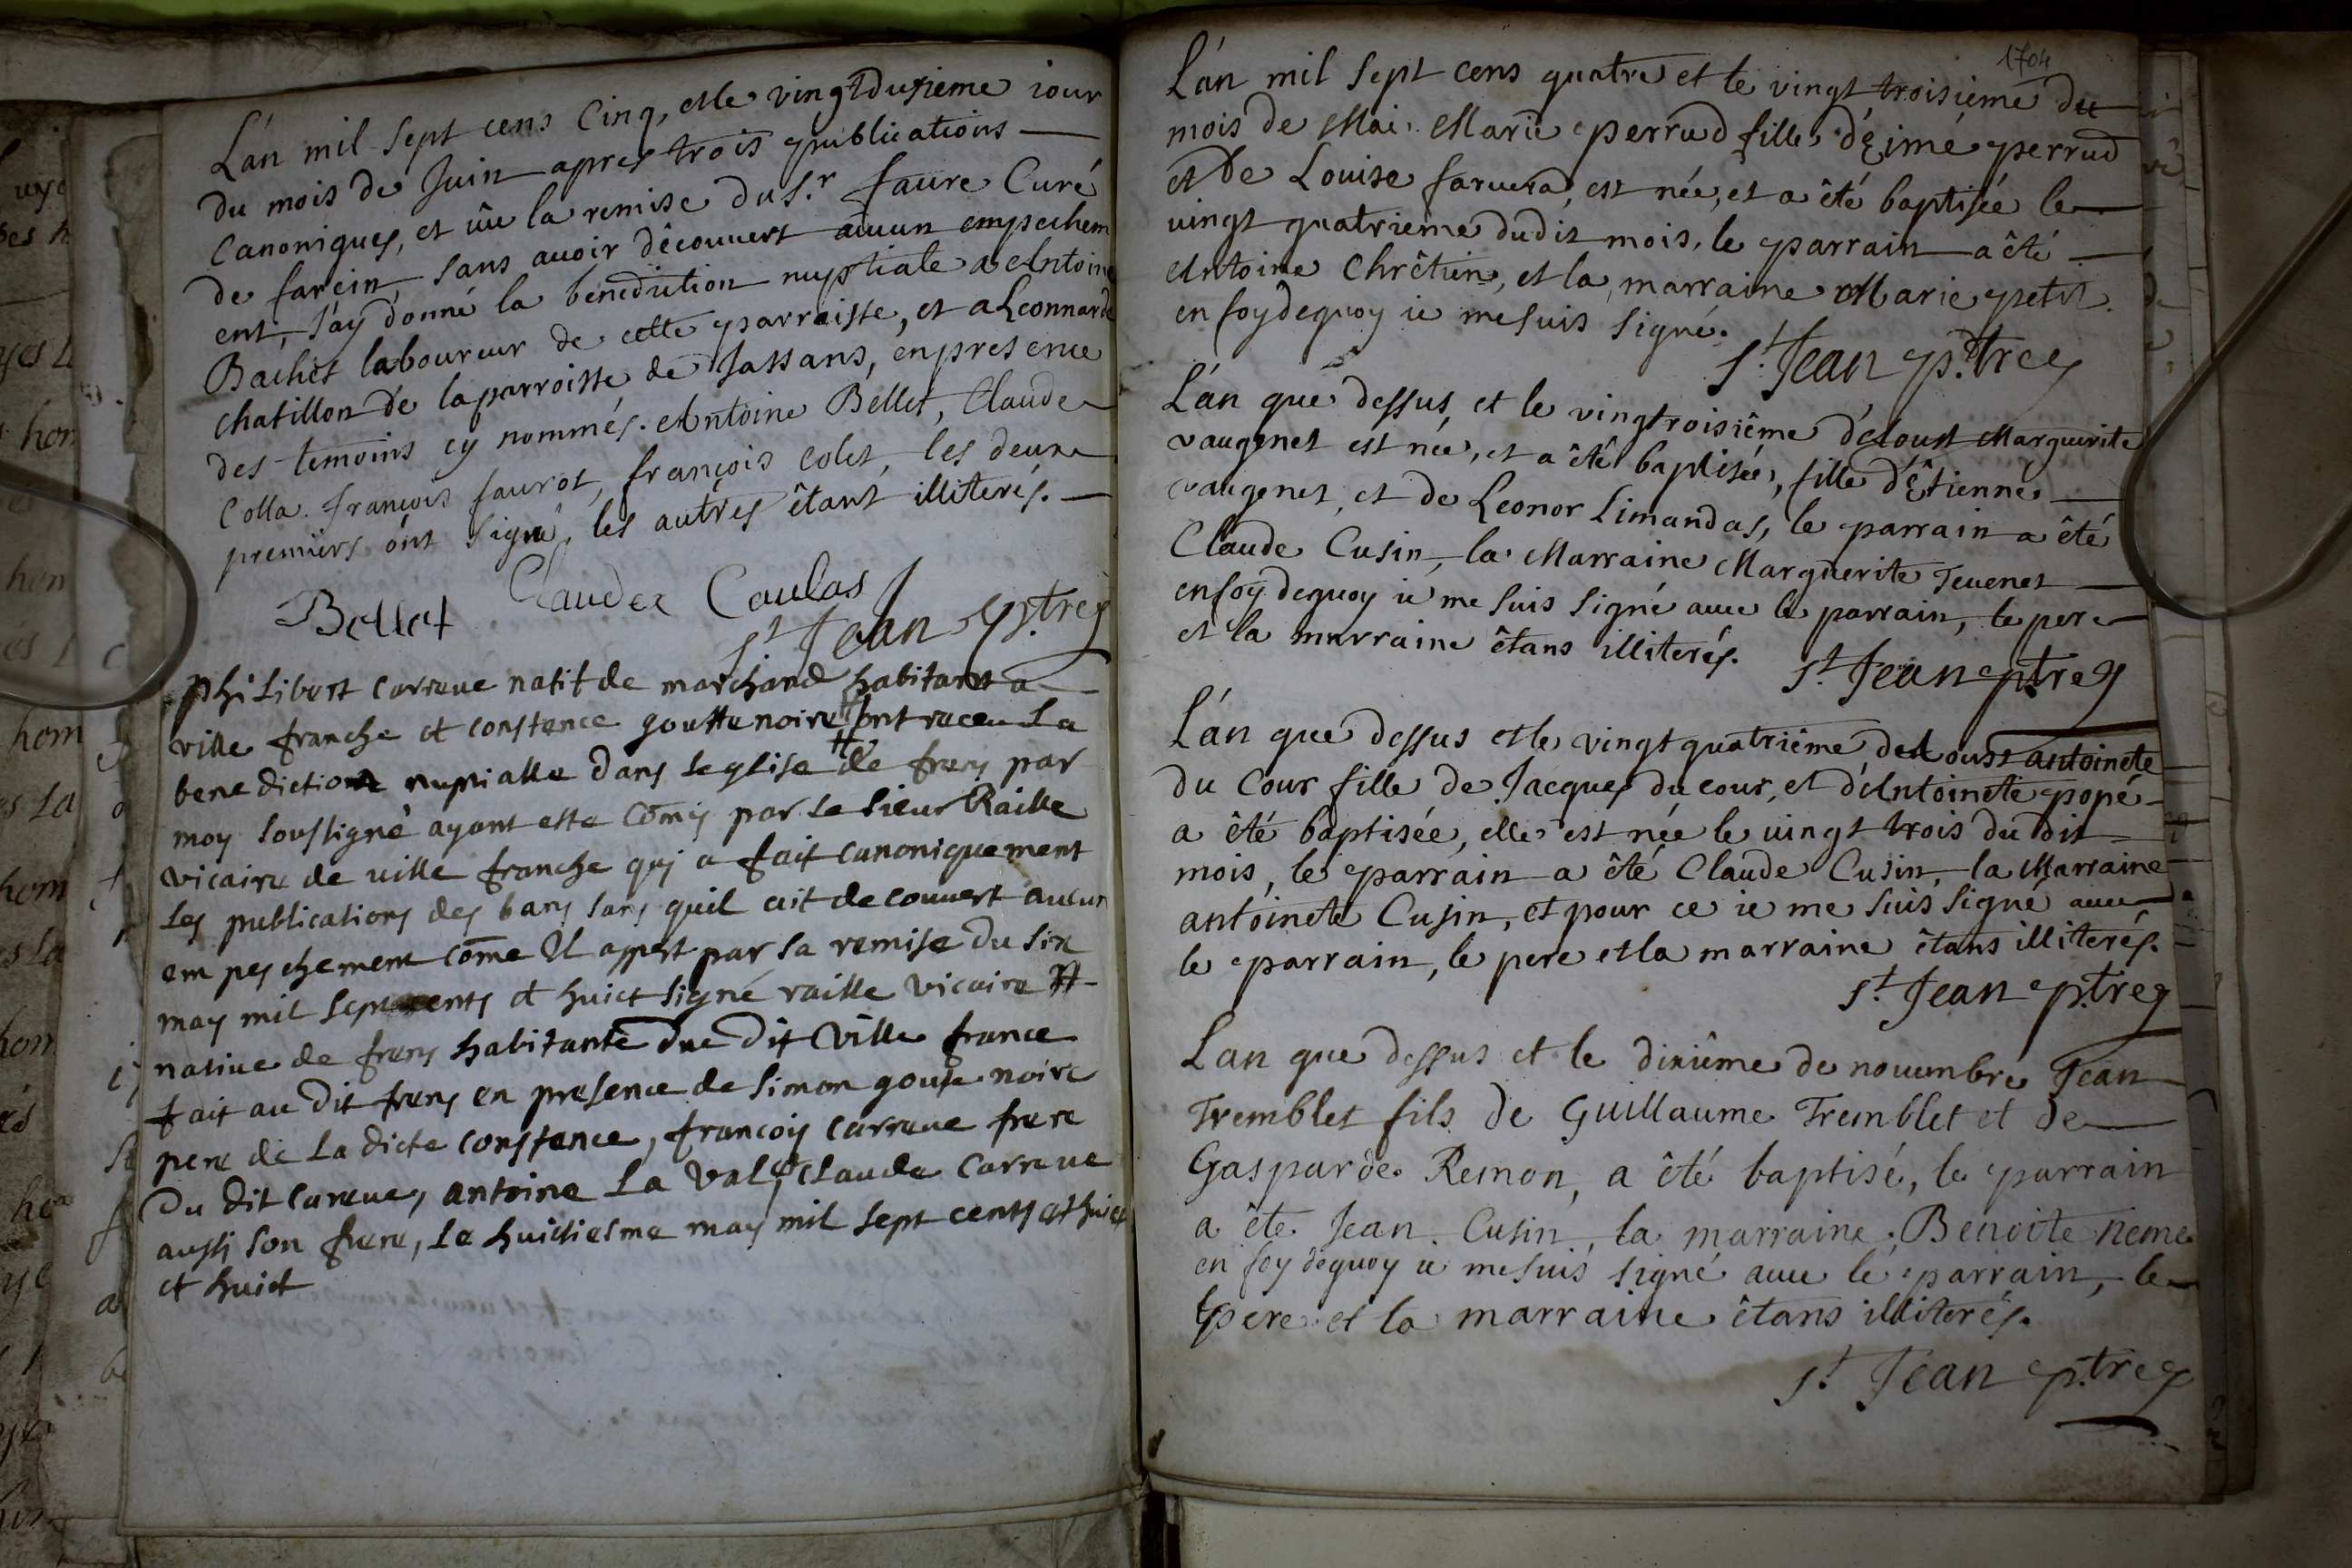 L'an mil sept cens Cinq, et le vingtdusieme iour
du mois de Juin apres trois publications
Canoniques, et vûe la remise du S.r faure Curé
de farein, sans auoir découuert aucun empechem
ent, J'ay donné la benediction nuptiale a Antoine
Bachet laboureur de cette parroisse, et a Leonnarde
chatillon de la parroisse de Jassans, en presence
des temoins cy nommés. Antoine Bellet, Claude
Colla. françois faurot, françois colet, les deux
premiers ont signé, les autres étant illiterés.
Bellet Claudee Caulas
St Jean p.tre
philibert carreue natif de marchand habitant a
ville franche et constance goutte noire # ont receu la
benediction nupialle dans leglise de frens par
moy soussigné ayant este comis par le sieur Raille
vicaire de ville franche qui a fait canoniquement
les publications des bans sans quil ait decouuert aucun
empeschement come Il appert par sa remise du six
may mil sept cents et huict signé raille vicaire #
natiue de frens habitante du dit ville france
fait au dit frens en presence de simon goute noire
pere de la dicte constance, francois carreue frere
du dit careue, antoine la val, et claude carreue
aussi son frere, le huictiesme may mil sept cents et huict
et huict
1704
L'an mil sept cens quatre et le vingt troisieme du
mois de Mai. Marie perrud fille d'Eimé perrud
et de Louise est née, et a été baptisée le
vingt quatrieme dudit mois, le parrain a été
Antoine Chrêtien, et la marraine Marie petit.
en foy dequoy ie me suis signé.
St Jean p.tre
L'an que dessus, et le vingtroisiême d'eloust Marguerite
vaugenet est née, et a été baptisée, fille d'Êtienne
vaugenet, et de Leonor Limandas, le parrain a été
Claude Cusin, la Marraine Marguerite Teuenet
en foy dequoy ie me suis signé auec le parrain, le pere
et la marraine êtans illiterés.
St Jean ptre
L'an que dessus et le vingt quatriême, deloust antoinete
du Cour fille de Jacques du cour, et d'Antoinete popé
a été baptisée, elle est née le uingt trois du dit
mois, le parrain a été Claude Cusin, la Marraine
antoinete Cusin, et pour ce ie me suis signé auec
le parrain, le pere et la marraine êtans illiterés.
St Jean p.tre
L'an que dessus et le dixiême de nouembre Jean
Tremblet fils de Guillaume Tremblet et de
Gasparde Remon, a été baptisé, le parrain
a éte Jean Cusin, la marraine Benoite neme
en foy dequoy ie me suis signé auec le parrain, le
pere et la marraine êtans illiterés.
St Jean p.tre